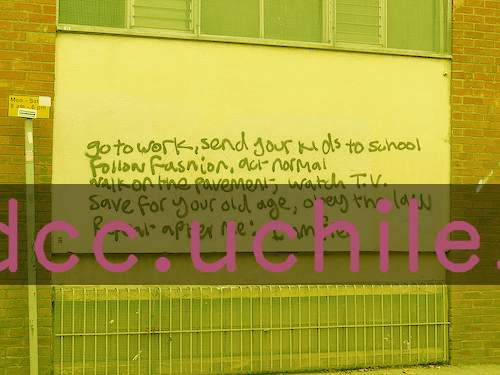 Mon - Sat
8 am - 6 pm
go to work, send your kids to school
follow fashion, act normal
walk on the pavement, watch T.V.
save for your old age, obey the law
Repeat after me: I am free
dcc.uchile.